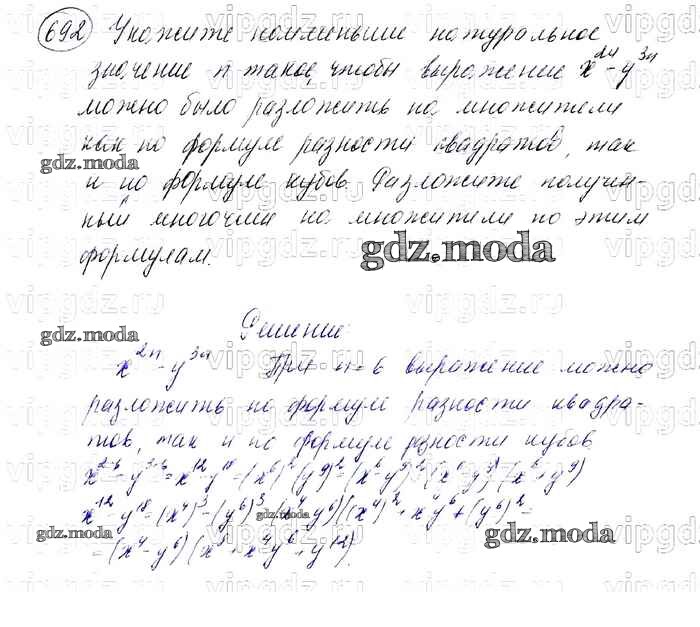 692 Укажите наименьшие натуральное
значение n такое, чтобы выражение x²ⁿ-y³ⁿ
можно было разложить на множители
как по формуле разности квадратов, так
gdz.moda
и по формуле кубов. Разложите получен-
ный многочлен на множители по этим
gdz.moda
формулам.
Решение:
gdz.moda
x²ⁿ-y³ⁿ При n=6 выражение можно
разложить по формуле разности квадра-
тов, так и по формуле рзности кубов
x²·⁶-y³·⁶=x¹²-y¹⁸=(x⁶)²-(y⁹)²=(x⁶-y⁹)(x⁶+y⁹)
x¹²-y¹⁸=(x⁴)³-(y⁶)³=(x⁴-y⁶)((x⁴)²+x⁴y⁶+(y⁶)²=
gdz.moda
=(x⁴-y⁶)(x⁸+x⁴y⁶+y¹²).
gdz.moda
gdz.moda